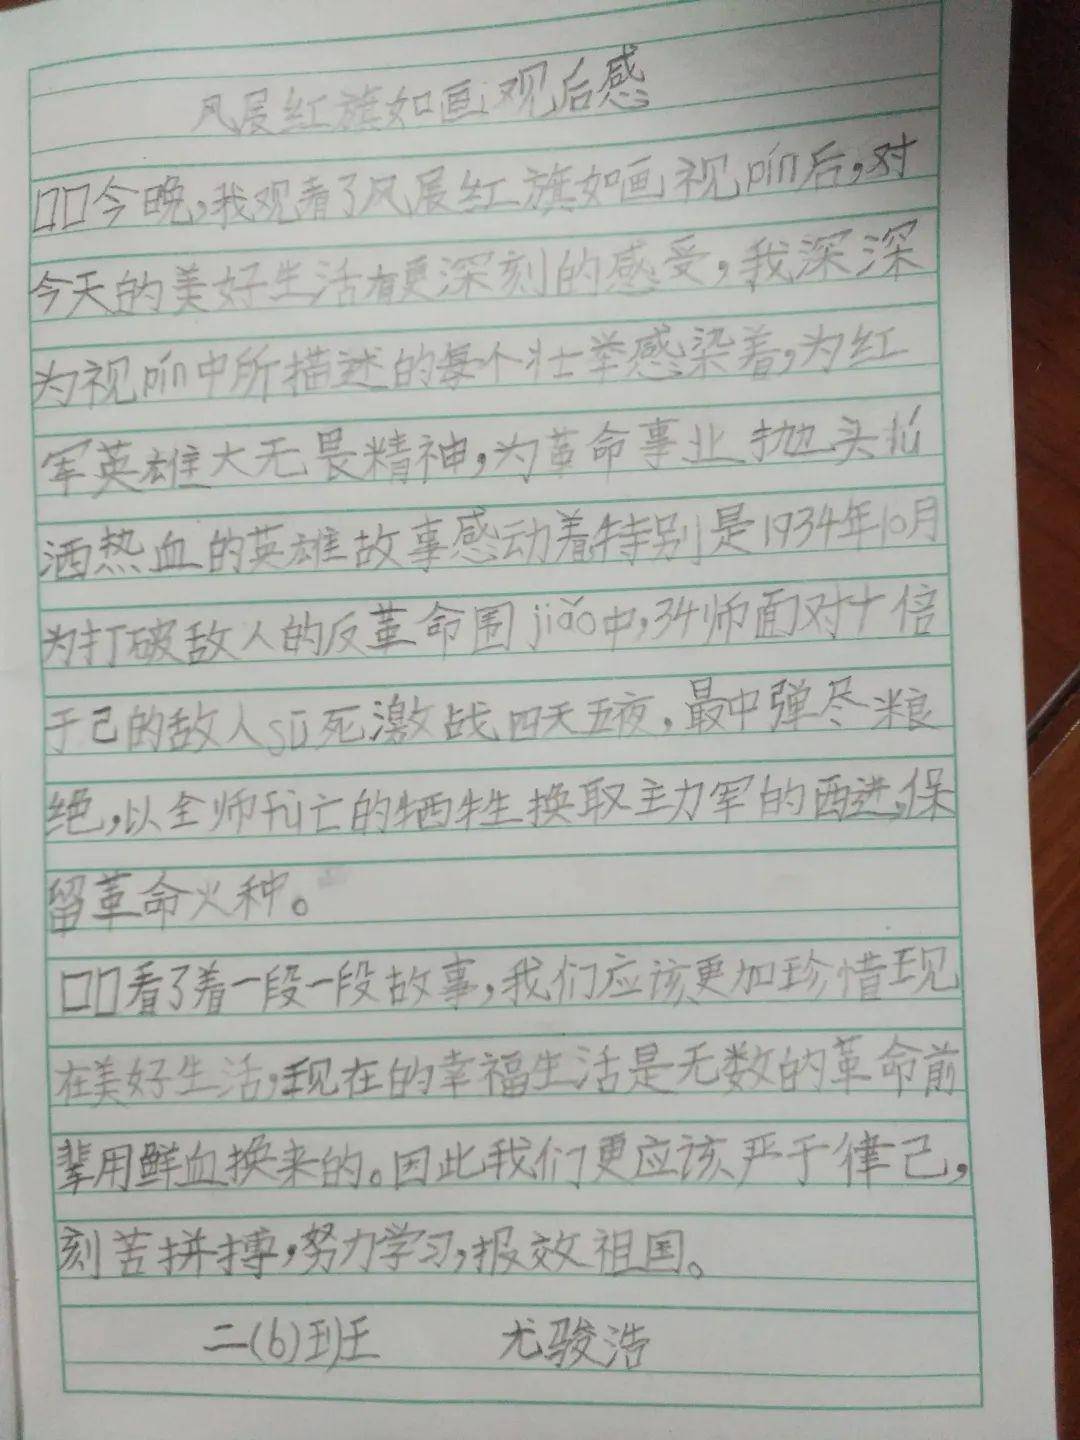 风展红旗如画观后感
□□今晚,我观看了风展红旗如画视pín后,对
今天的美好生活有更深刻的感受,我深深
为视pín中所描述的每个壮举感染着,为红
军英雄大无畏精神,为革命事业抛头lú
洒热血的英雄故事感动着特别是1934年10月
为打破敌人的反革命围jiǎo中,34师面对十倍
于己的敌人sū死激战四天五夜,最中弹尽粮
绝,以全师亡的牺牲换取主力军的西进,保
留革命火种。
□□看了着一段一段故事,我们应该更加珍惜现
在美好生活,现在的幸福生活是无数的革命前
辈用鲜血换来的。因此我们更应该严于律己,
刻苦拼搏,努力学习,报效祖国。
二(6)班 尤骏浩